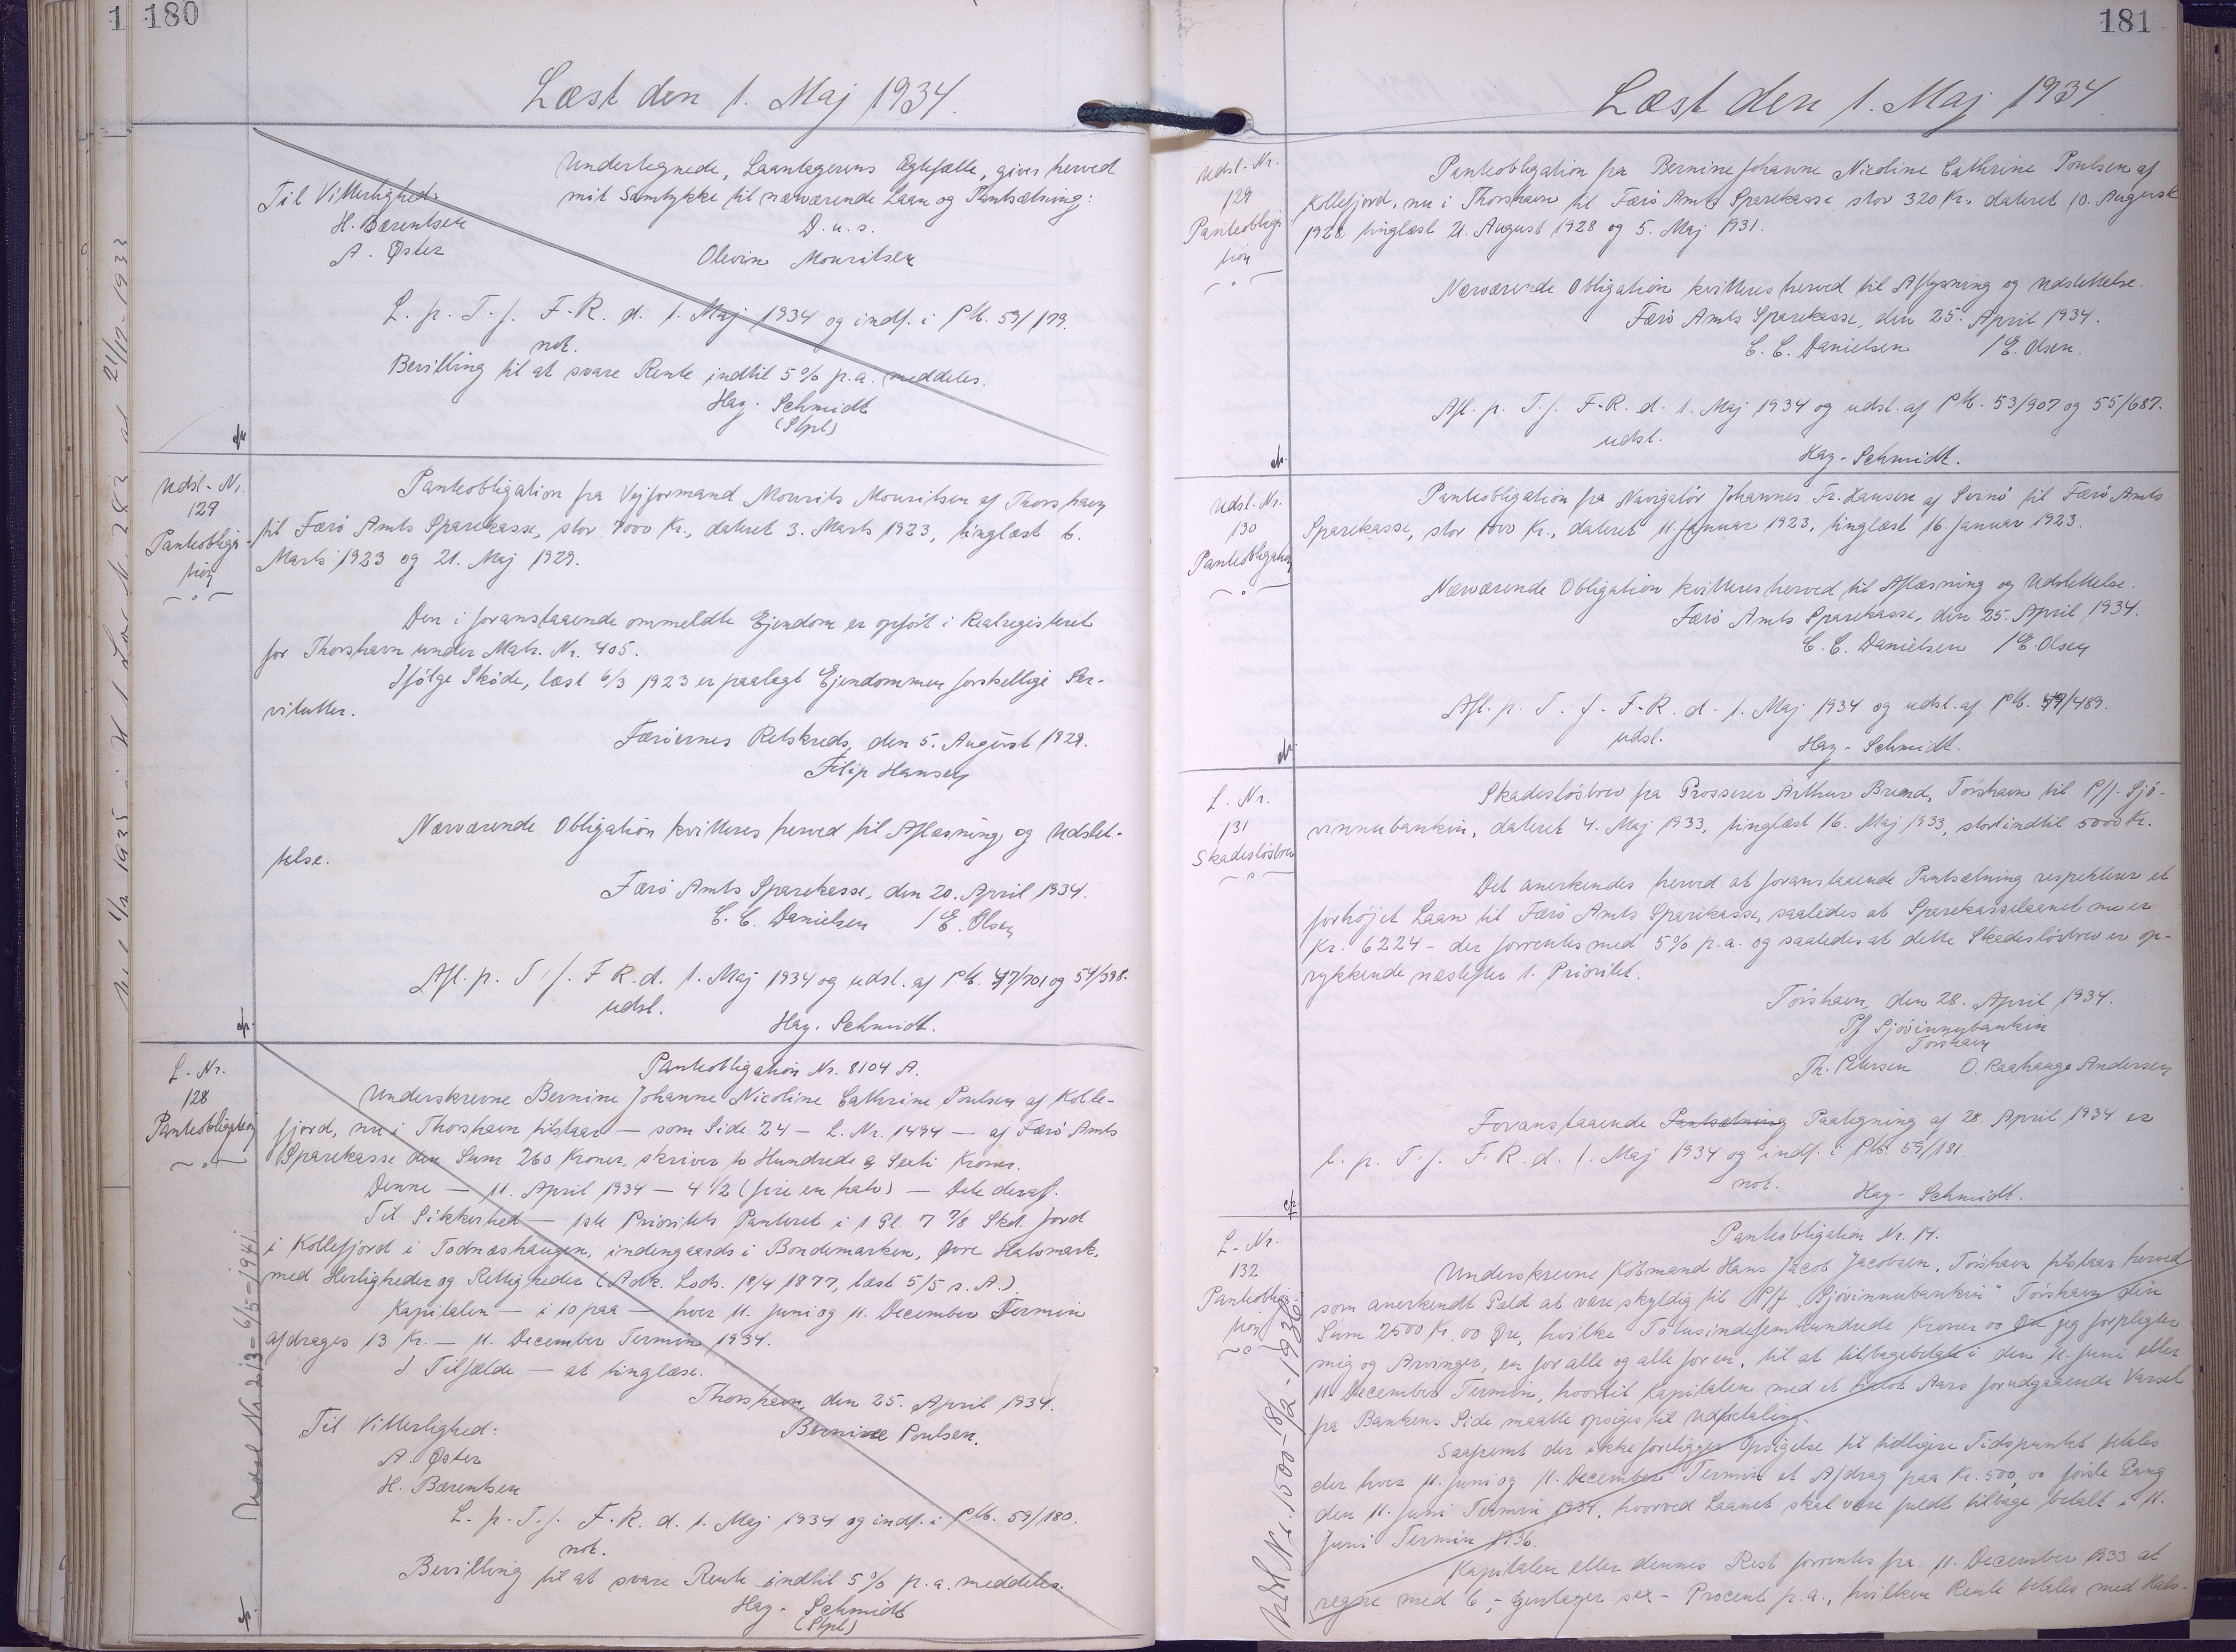 180
Læst den 1. Maj 1934.
Undertegnede, Laantagerens Ægtefælle, giver herved
mit Samtykke til nærværende Laan og Pantsætning:
Til Vitterlighed:
H. Bærentsen
A. Øster
D. u. s.
Olevine Mouritsen
L. p. T. f. F. R. d. 1. Maj 1934 og indf. i Ptb. 59/179.
not.
Bevilling til at svare Rente indtil 5% p.a. meddeles.
Hay-Schmidt
(Stpl)
Udsl-Nr.
129
Panteobliga-
tion
Panteobligation fra Vejformand Mourits Mouritsen af Thorshavn
til Færö Amts Sparekasse, stor 7000 Kr., dateret 3. Marts 1923, tinglæst 6.
Marts 1923 og 21. Maj 1929.
Den i foranstaaende ommeldte Ejendom er opført i Realregisteret
for Thorshavn under Matr. Nr. 405.
Ifølge Skøde, læst 6/3 1923 er paalagt Ejendommen forskellige Ser-
vitutter.
Færöernes Retskreds, den 5. August 1929.
Filip Hansen
Nærværende Obligation kvitteres herved til Aflæsning og Udslet-
telse.
Færö Amts Sparekasse, den 20. April 1934.
C. C. Danielsen / E. Olsen
Afl. p. T. f. F. R. d. 1. Maj 1934 og udsl. af Ptb. 47/701 og 54/398.
udsl.
Hay-Schmidt.
L-Nr.
128
Panteobligation
Panteobligation Nr. 8104 A.
Underskrevne Bernine Johanne Nicoline Cathrine Poulsen af Kolle-
fjord, nu i Thorshavn tilstaar — som Side 24 — L. Nr. 1494 — af Færö Amts
Sparekasse den Sum 260 Kroner, skriver to Hundrede og Seeti Kroner.
Denne — 11. April 1934 — 4 1/2 (fire en halv) — Dele deraf.
Til Sikkerhed — 1ste Prioritets Panteret i 1 Gl. 7 7/8 Skd. Jord
i Kollefjord i Todnæshaugen, indengaards i Bondemarken, Øvre Halsmark,
med Herligheder og Rettigheder (Adk. Lods. 18/4 1877, læst 5/5 s. A.)
Kapitalen — i 10 paa — hver 11. Juni og 11. December Termin
afdrages 13 Kr. — 11. December Termin 1934.
I Tilfælde — at tinglæse.
Thorshavn, den 25. April 1934.
Til Vitterlighed:
Bernine Poulsen.
A. Øster
H. Bærentsen
L. p. T. f. F. R. d. 1. Maj 1934 og indf. i Ptb. 59/180.
not.
Bevilling til at svare Rente indtil 5% p.a. meddeles.
Hay-Schmidt
(Stpl)
Udsl Nr. 213 = 6/5 = 1941
181
Læst den 1. Maj 1934
Udsl. Nr.
129
Panteobliga
tion
Panteobligation fra Bernine Johanne Nicoline Cathrine Poulsen af
Kollefjord, nu i Thorshavn til Færö Amts Sparekasse stor 320 Kr., dateret 10. August
1928 tinglæst 21. August 1928 og 5. Maj 1931.
Nærværende Obligation kvitteres herved til Aflysning og Udslettelse.
Færö Amts Sparekasse, den 25. April 1934.
C. C. Danielsen / E. Olsen.
Afl. p. T. f. F-R. d. 1. Maj 1934 og udsl. af Ptb. 53/907 og 55/687.
udsl.
Hay-Schmidt.
Udsl. Nr.
130
Panteobligation
Panteobligation fra Navigatör Johannes Fr. Hansen af Svinö til Færö Amts
Sparekasse, stor 1000 Kr., dateret 11. Januar 1923, tinglæst 16. Januar 1923.
Nærværende Obligation kvitteres herved til Aflæsning og Udslettelse.
Færö Amts Sparekasse, den 25. April 1934.
C. C. Danielsen / E. Olsen
Afl. p. T. f. F-R. d. 1. Maj 1934 og udsl. af Ptb. 49/489.
udsl.
Hay-Schmidt.
L. Nr.
131
Skadesløsbrev
Skadesløsbrev fra Grosserer Arthur Brend, Tórshavn til P/f. Sjó-
vinnubankin, dateret 4. Maj 1933, tinglæst 16. Maj 1933, stort indtil 5000 Kr.
Det anerkendes herved at foranstaaende Pantsætning respekterer et
forhöjet Laan til Færö Amts Sparekasse, saaledes at Sparekasselaanet nu er
Kr. 6224 - der forrentes med 5% p.a. og saaledes at dette Skadeslösbrev er op-
rykkende næstefter 1. Prioritet.
Tórshavn, den 28. April 1934.
P/f Sjóvinnubankin
Tórshavn
Th. Petersen O. Raahauge Andersen
Foranstaaende Pantsætning Paategning af 28. April 1934 er
l. p. T. f. F. R. d. 1. Maj 1934 og indf. i Ptb. 59/181.
not.
Hay-Schmidt.
L-Nr.
132
Panteobliga-
tion
Panteobligation Nr. 14.
Underskrevne Köbmand Hans Jacob Jacobsen, Tórshavn tilstaar herved
som anerkendt Gæld at være skyldig til P/f "Sjóvinnubankin" Tórshavn den
Sum 2500 Kr. 00 Øre, hvilke Totusindefemhundrede Kroner 00 Øre jeg forpligter
mig og Arvinger, en for alle og alle for en, til at tilbagebetale i den 11. Juni eller
11. December Termin, hvortil Kapitalen med et halvt Aars forudgaaende Varsel
fra Bankens Side maatte opsiges til Udbetaling.
Saafremt der ikke foreligger Opsigelse til tidligere Tidspunkt betales
der hver 11. Juni og 11. December Termin et Afdrag paa Kr. 500,00 förste Gang
den 11. Juni Termin 1934, hvorved Laanet skal være fuldt tilbage betalt i 11.
Juni Termin 1936.
Kapitalen eller dennes Rest forrentes fra 11. December 1933 at
regne med 6,- gentager sex - Procent p.a., hvilken Rente betales med Halv-
Udsl Nr. 1500-18/12-1936